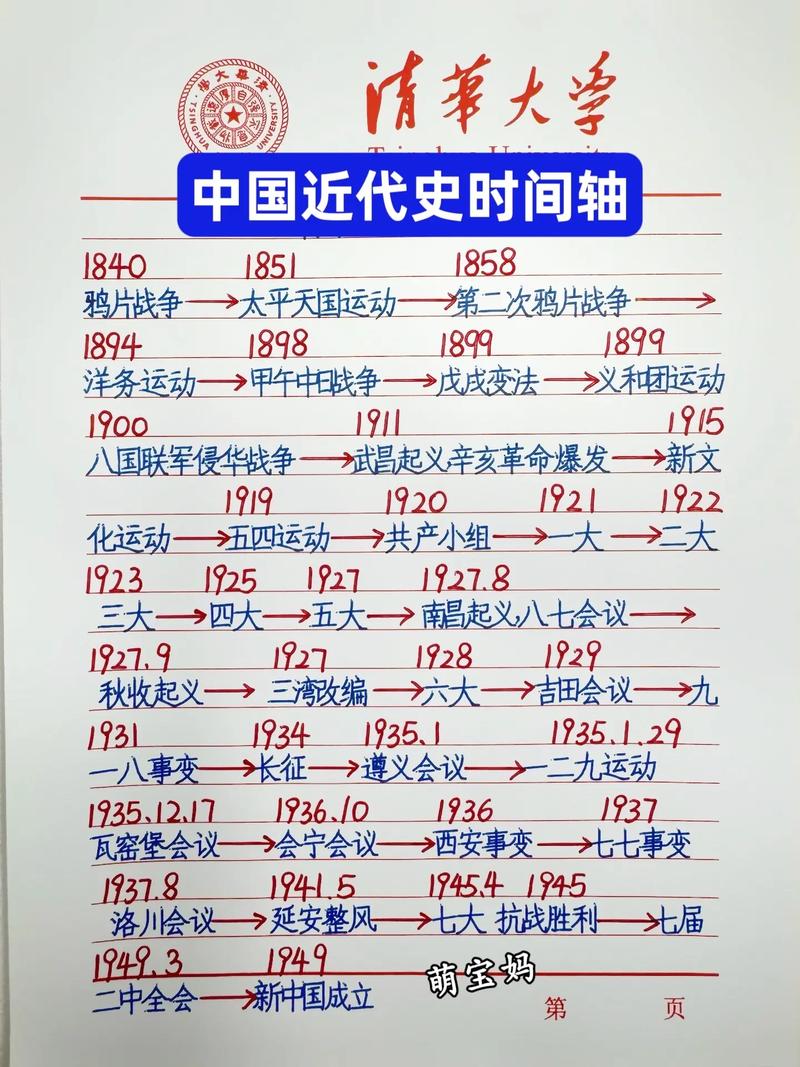 清華大學
TSINGHUA UNIVERSITY
清华大学
中国近代史时间轴
1840 1851 1858
鸦片战争→太平天国运动→第二次鸦片战争→
1894 1898 1899 1899
洋务运动→甲午中日战争→戊戌变法→义和团运动
1900 1911 1915
八国联军侵华战争→武昌起义,辛亥革命爆发→新文
1919 1920 1921 1922
化运动→五四运动→共产小组→一大→二大
1923 1925 1927 1927.8
三大→四大→五大→南昌起义,八七会议→
1927.9 1927 1928 1929
秋收起义→三湾改编→六大→吉田会议→九
1931 1934 1935.1 1935.1.29
一八事变→长征→遵义会议→一二九运动
1935.12.17 1936.10 1936 1937
瓦窑堡会议→会宁会议→西安事变→七七事变
1937.8 1941.5 1945.4 1945
洛川会议→延安整风→七大 抗战胜利→七届
1949.3 1949
二中全会→新中国成立
萌宝妈
第 页